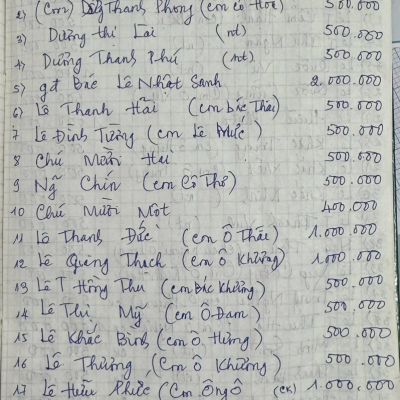 2) (Con) Dg Thanh Phong (con cô Hoa) 500.000
3) Dương thị Lài (nt) 500.000
4) Dương Thanh Phú (nt) 500.000
5) gđ Bác Lê Nhật Sanh 2.000.000
6) Lê Thanh Hải (con bác Thái) 500.000
7 Lê Đình Tường (con Lê Mức) 500.000
8 Chú Mười Hai 500.000
9 Ng Chín (con Cô Thơ) 500.000
10 Chú Mười Một 400.000
11 Lê Thanh Đức (con Ô Thái) 1.000.000
12 Lê Quang Thạch (con Ô Khương) 1.000.000
13 Lê T Hồng Thu (con bác Khương) 500.000
14 Lê Thị Mỹ (con Ô Đam) 500.000
15 Lê Khắc Bình (con ô Hưng) 500.000
16 Lê Thương (con Ô Khương) 500.000
17 Lê Hữu Phước (Con Ông Ô (CK) 1.000.000